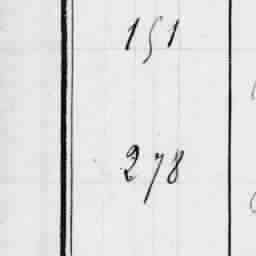 151
278